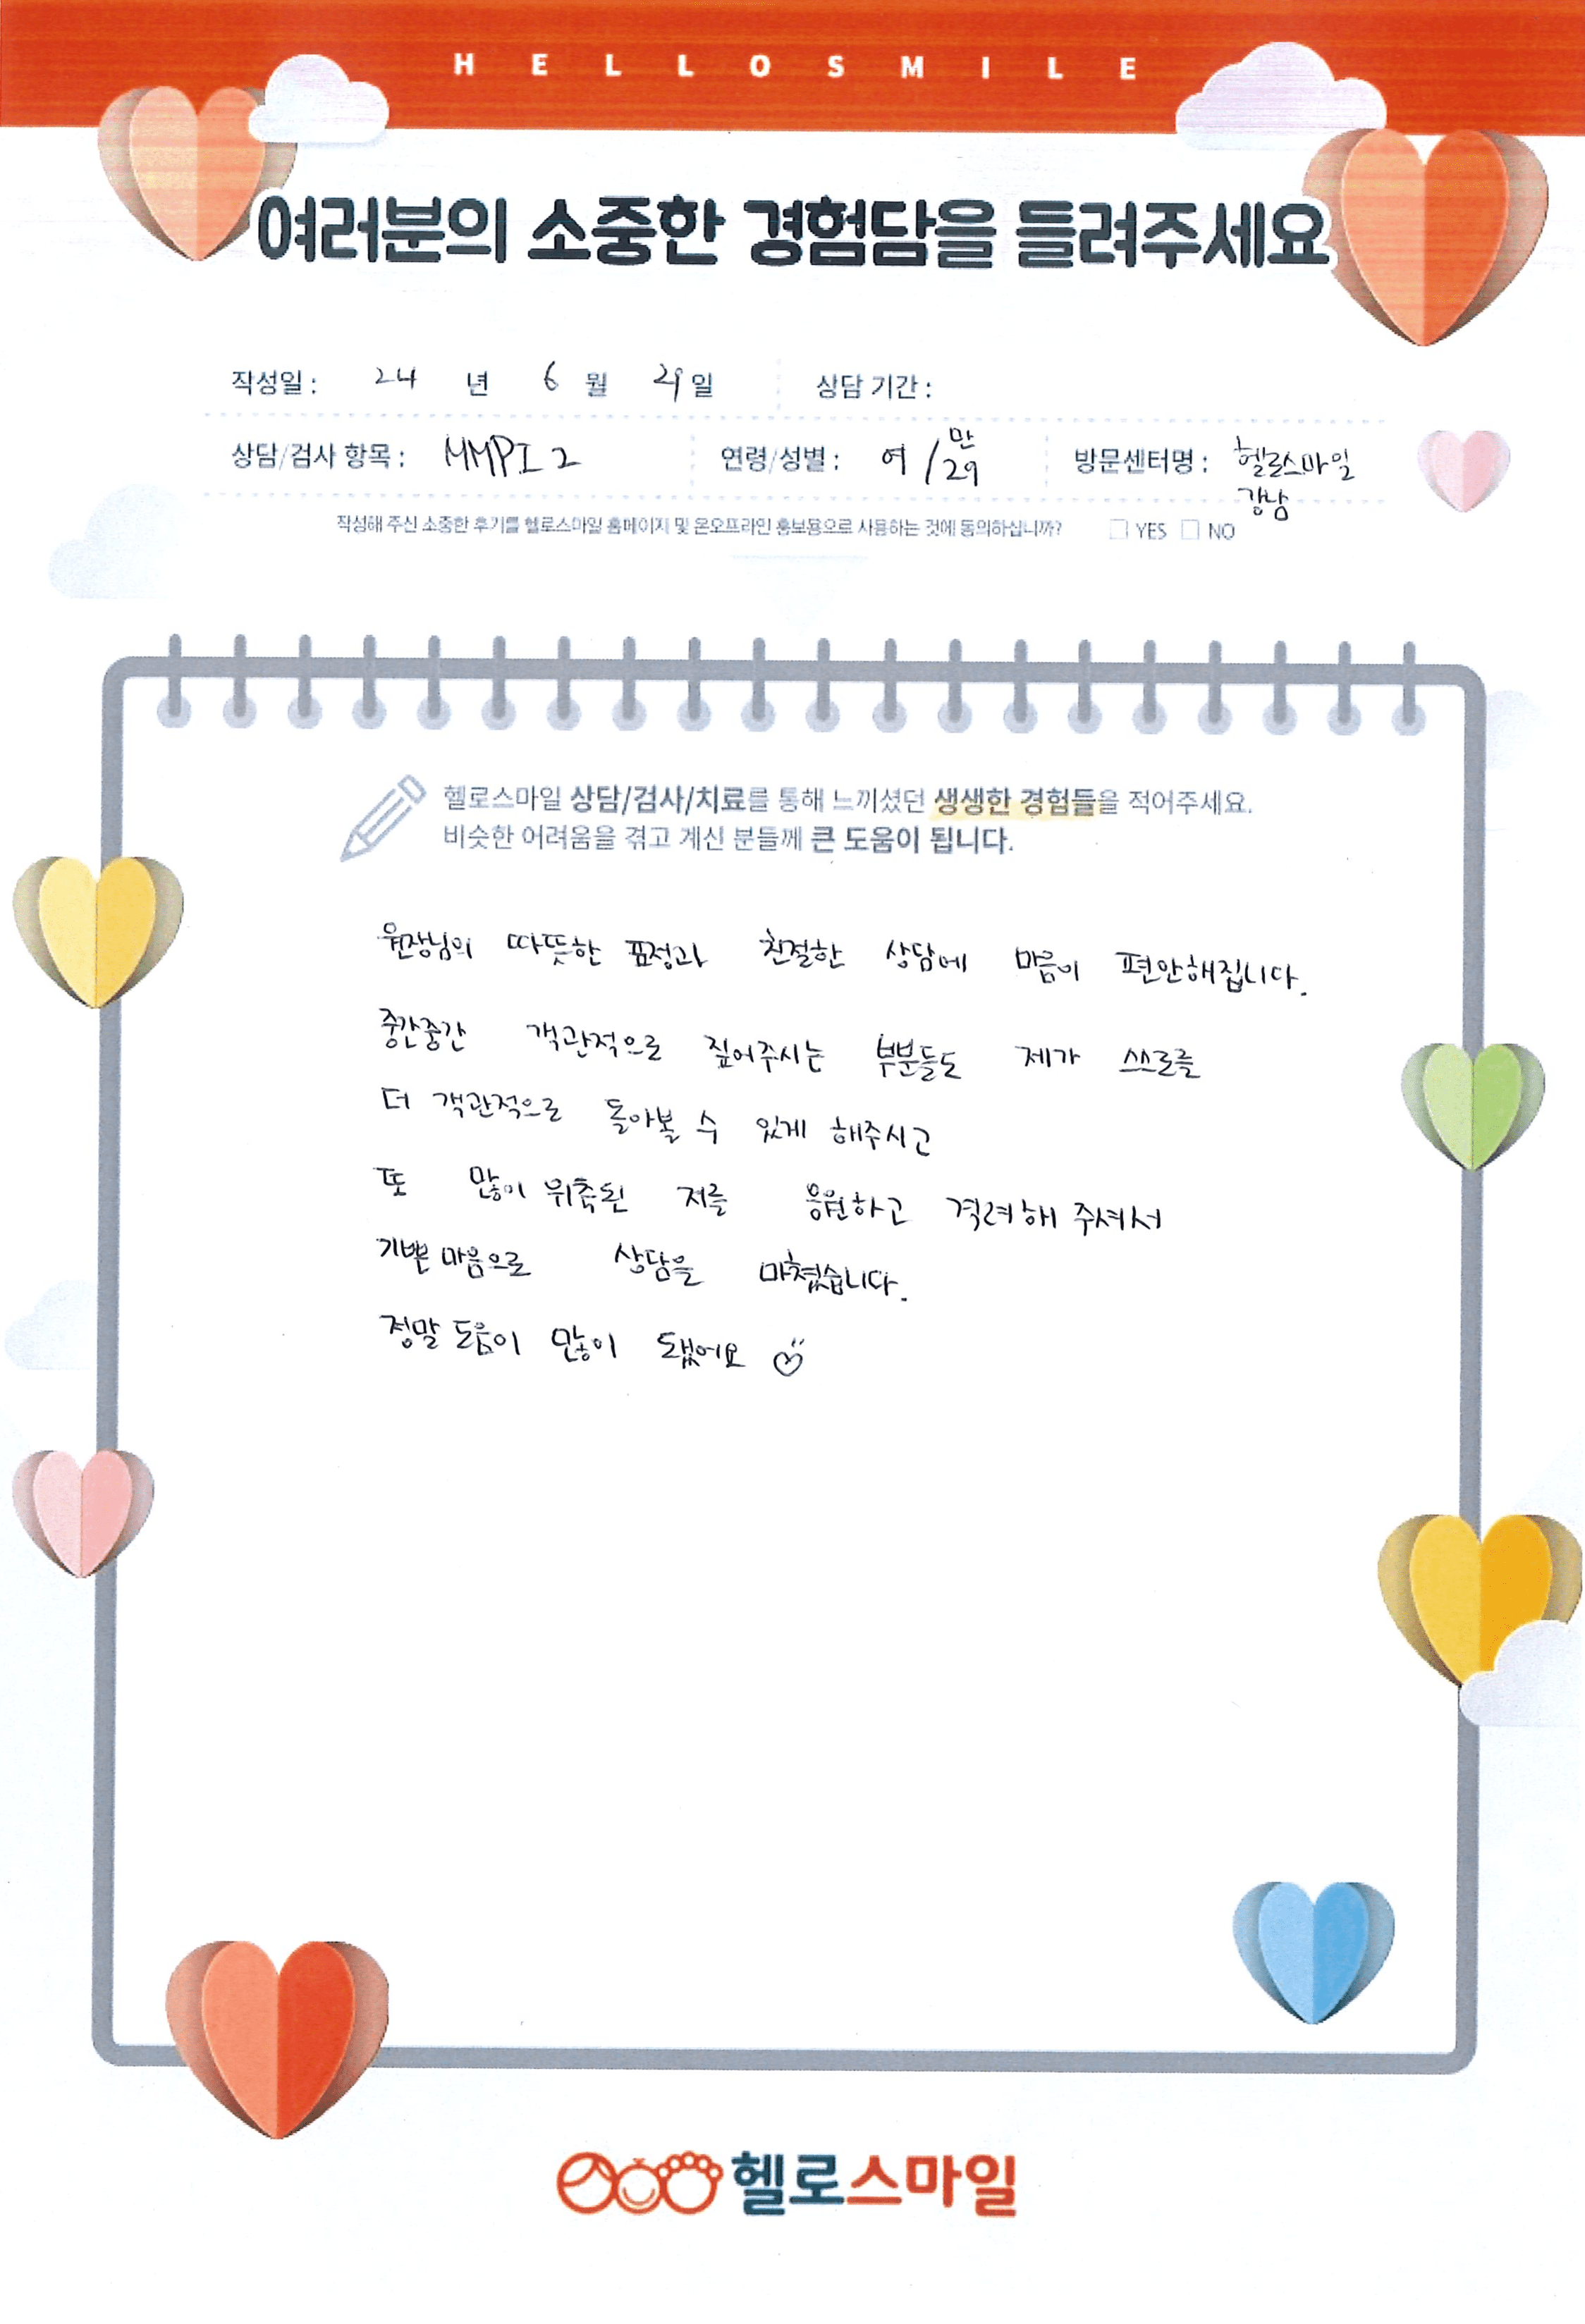 HELLOSMILE
여러분의 소중한 경험담을 들려주세요
작성일 : 24 년 6 월 29 일 상담 기간 :
상담/검사 항목 : MMPI 2 연령/성별 : 여 / 만 29 방문센터명 : 헬로스마일
강남
작성해 주신 소중한 후기를 헬로스마일 홈페이지 및 온오프라인 홍보용으로 사용하는 것에 동의하십니까? □ YES □ NO
헬로스마일 상담/검사/치료를 통해 느끼셨던 생생한 경험들을 적어주세요.
비슷한 어려움을 겪고 계신 분들께 큰 도움이 됩니다.
원장님의 따뜻한 표정과 친절한 상담에 마음이 편안해집니다.
중간중간 객관적으로 짚어주시는 부분들도 제가 스스로를
더 객관적으로 돌아볼 수 있게 해주시고
또 많이 위축된 저를 응원하고 격려해 주셔서
기쁜 마음으로 상담을 마쳤습니다.
정말 도움이 많이 됐어요
헬로스마일